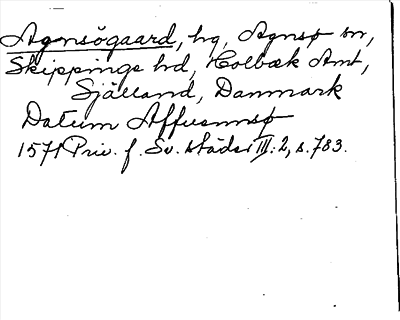 Agnsögaard, hg, Agnsø sn,
Skippinge hd, Holbæk Amt,
Själland, Danmark
Datum Affuensnsø
1571 Priv. f. Sv. städer III:2, s. 783.